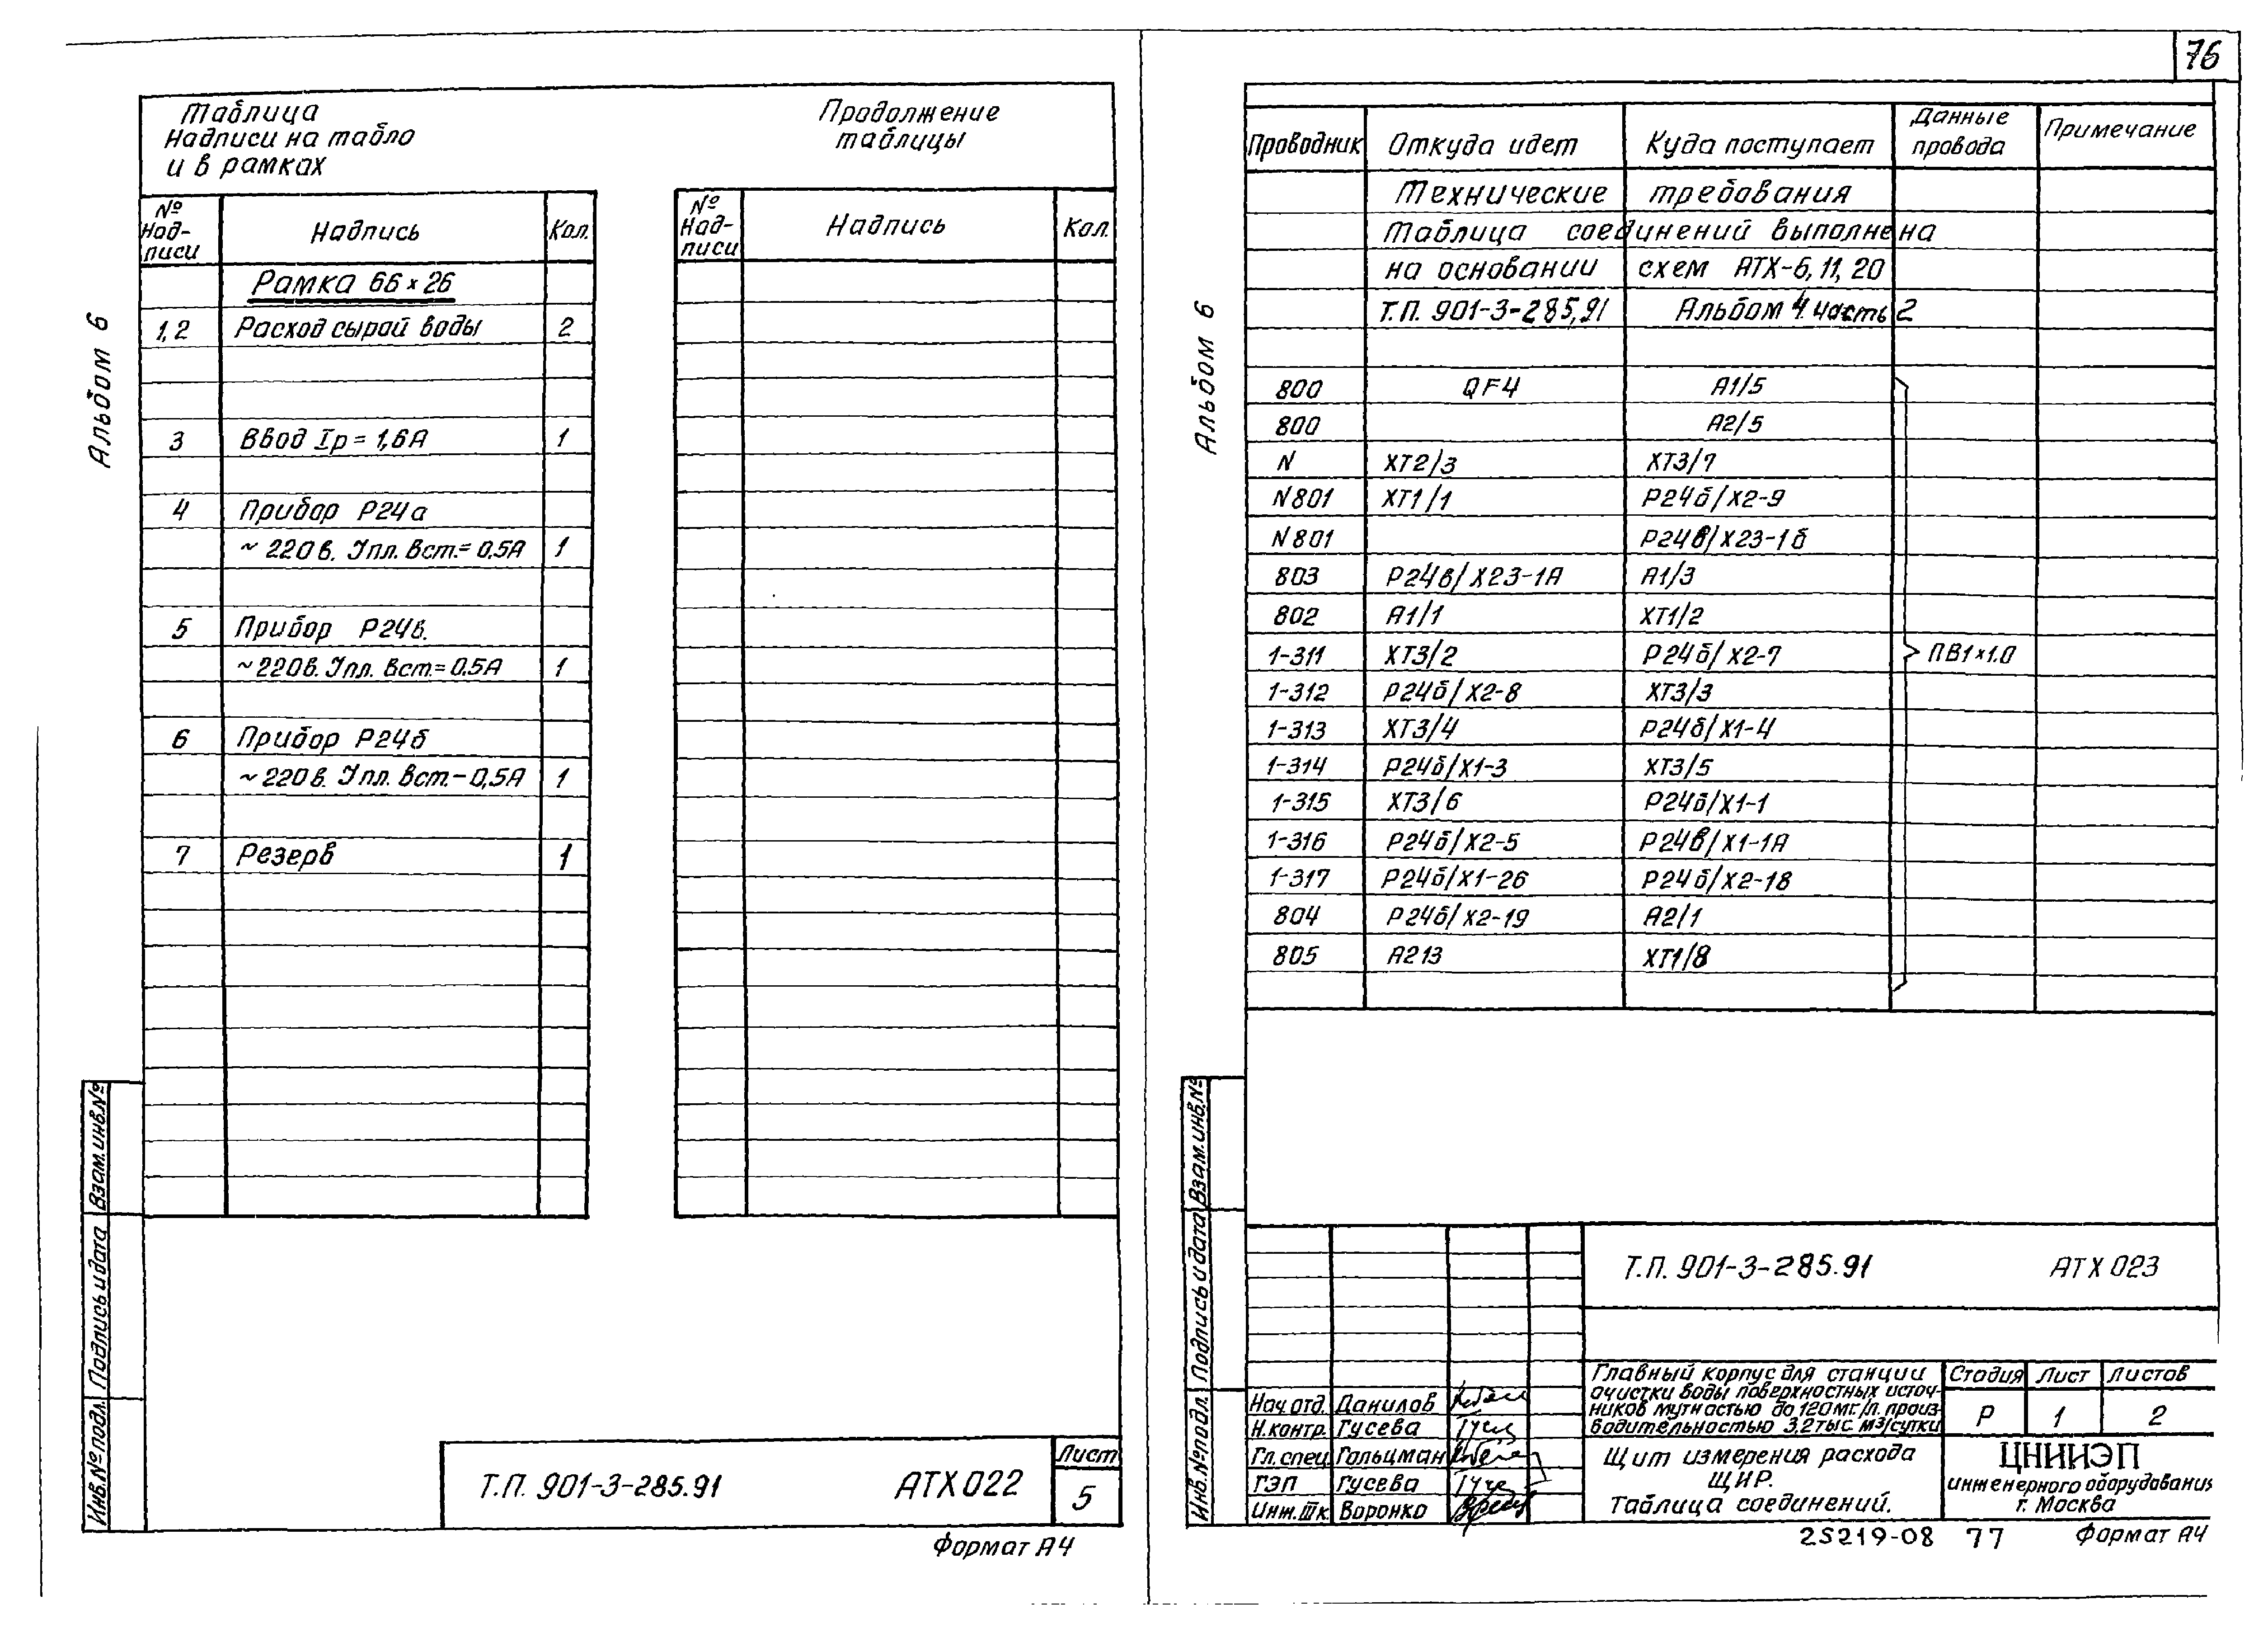 76
Таблица
Надписи на табло
и в рамках
Продолжение
таблицы
№ Над-писи Надпись Кол.
Рамка 66×26
1,2 Расход сырой воды 2
3 Ввод Iр = 1,6А 1
4 Прибор Р24а
~ 220в. Iпл. вст.= 0,5А 1
5 Прибор Р24в.
~220в. Iпл. вст.= 0,5А 1
6 Прибор Р24б
~220в. Iпл. вст.- 0,5А 1
7 Резерв 1
№ Над-писи Надпись Кол.
Альбом 6
Взам.инв.№
Подпись и дата
Инв.№ подл.
Т.П. 901-3-285.91 АТХ 022
Лист
5
Формат А4
Проводник Откуда идет Куда поступает Данные провода Примечание
Технические требования
Таблица соединений выполнена
на основании схем АТХ-6, 11, 20
Т.П. 901-3-285,91 Альбом 4 часть 2
800 QF4 А1/5
800 А2/5
N ХТ2/3 ХТ3/7
N801 ХТ1/1 Р24б/Х2-9
N801 Р24в/Х23-1б
803 Р24в/Х23-1А А1/3
802 А1/1 ХТ1/2
1-311 ХТ3/2 Р24б/Х2-7 ПВ1×1.0
1-312 Р24б/Х2-8 ХТ3/3
1-313 ХТ3/4 Р24б/Х1-4
1-314 Р24б/Х1-3 ХТ3/5
1-315 ХТ3/6 Р24б/Х1-1
1-316 Р24б/Х2-5 Р24в/Х1-1А
1-317 Р24б/Х1-26 Р24б/Х2-18
804 Р24б/Х2-19 А2/1
805 А213 ХТ1/8
Альбом 6
Взам.инв.№
Подпись и дата
Инв.№ подл.
Т.П. 901-3-285.91 АТХ 023
Главный корпус для станции
очистки воды поверхностных источ-
ников мутностью до 120мг/л. произ-
водительностью 3,2 тыс. м3/сутки
Стадия Лист Листов
Р 1 2
Нач.отд. Данилов
Н.контр. Гусева
Гл.спец. Гольцман
ГЭП Гусева
Инж.IIк. Воронко
Щит измерения расхода
ЩИР.
Таблица соединений.
ЦНИИЭП
инженерного оборудования
г. Москва
25219-08 77 Формат А4